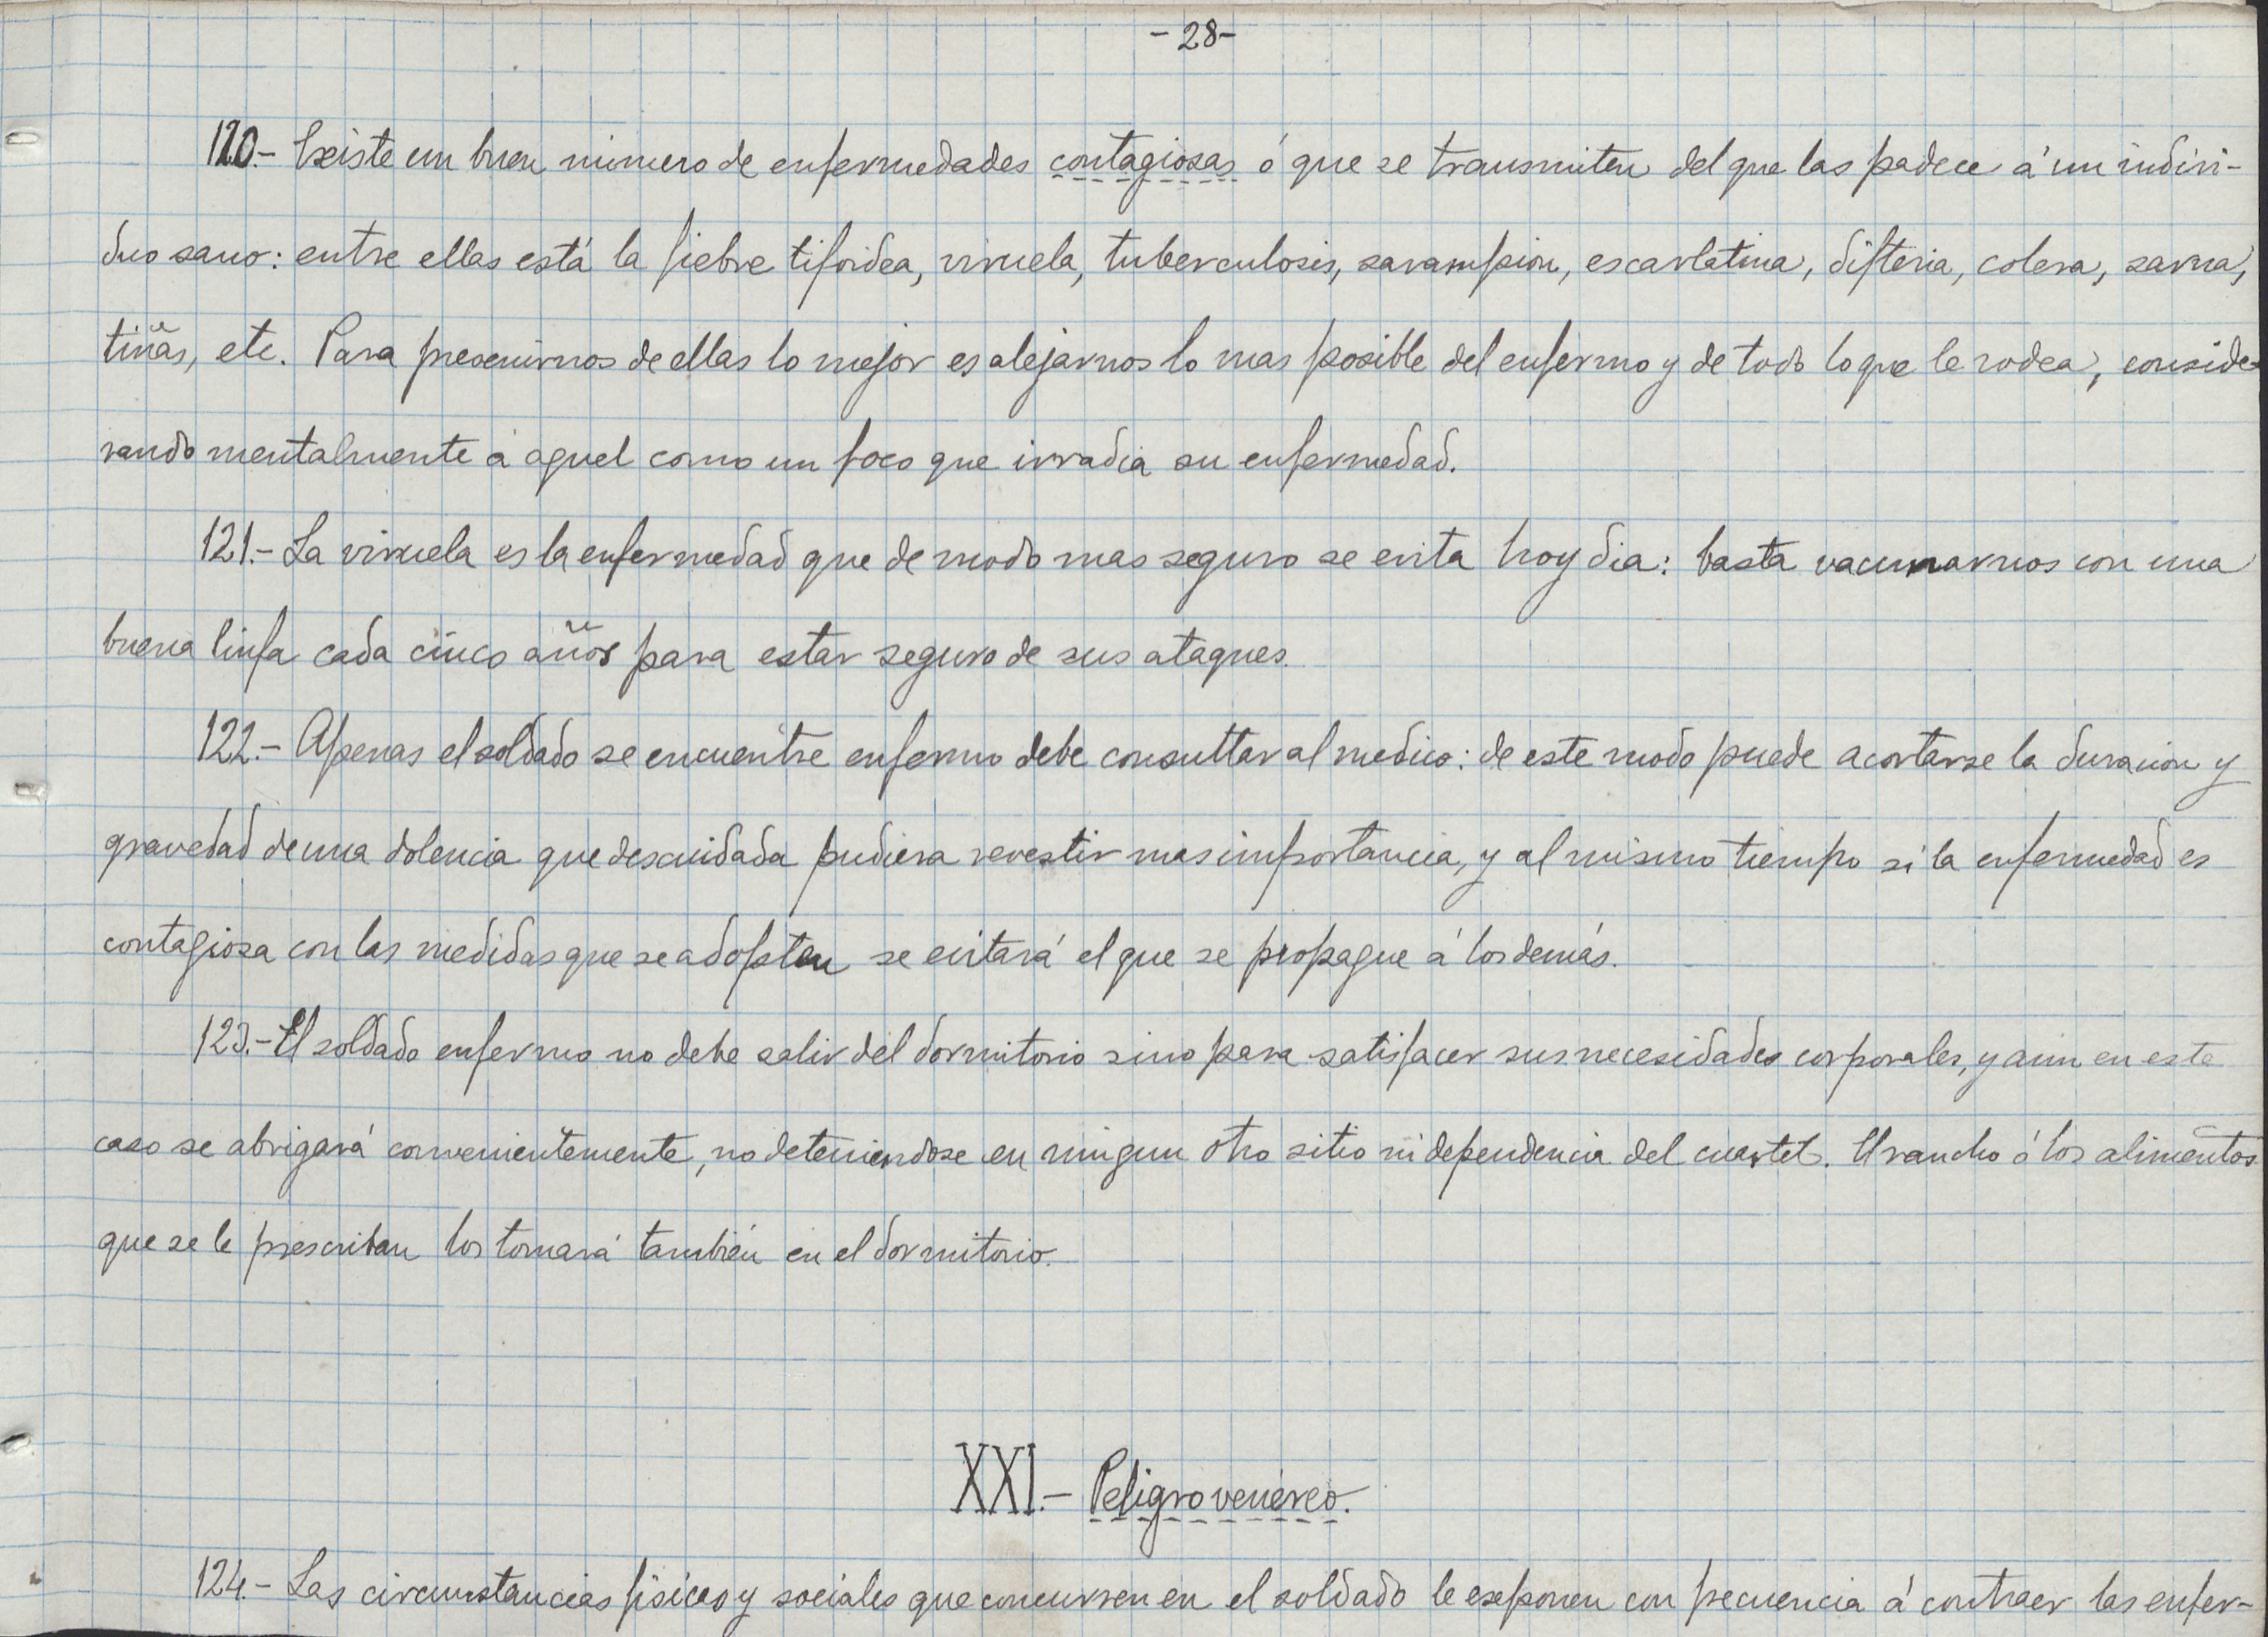 -28-
120.- Existe un buen número de enfermedades contagiosas ó que se transmiten del que las padece á un indivi-
duo sano: entre ellas está la fiebre tifoidea, viruela, tuberculosis, sarampion, escarlatina, difteria, colera, sarna,
tiñas, etc. Para prevenirnos de ellas lo mejor es alejarnos lo mas posible del enfermo y de todo lo que le rodea, conside-
rando mentalmente á aquel como un foco que irradia su enfermedad.
121.- La viruela es la enfermedad que de modo mas seguro se evita hoy dia: basta vacunarnos con una
buena linfa cada cinco años para estar seguro de sus ataques.
122.- Apenas el soldado se encuentre enfermo debe consultar al medico: de este modo puede acortarse la duracion y
gravedad de una dolencia que descuidada pudiera revestir mas importancia, y al mismo tiempo si la enfermedad es
contagiosa con las medidas que se adopten se evitará el que se propague á los demás.
123.- El soldado enfermo no debe salir del dormitorio sino para satisfacer sus necesidades corporales, y aun en este
caso se abrigará convenientemente, no deteniendose en ningun otro sitio ni dependencia del cuartel. El rancho ó los alimentos
que se le prescriban los tomará también en el dormitorio.
XXI.- Peligro venéreo.
124.- Las circunstancias físicas y sociales que concurren en el soldado le exponen con frecuencia á contraer las enfer-